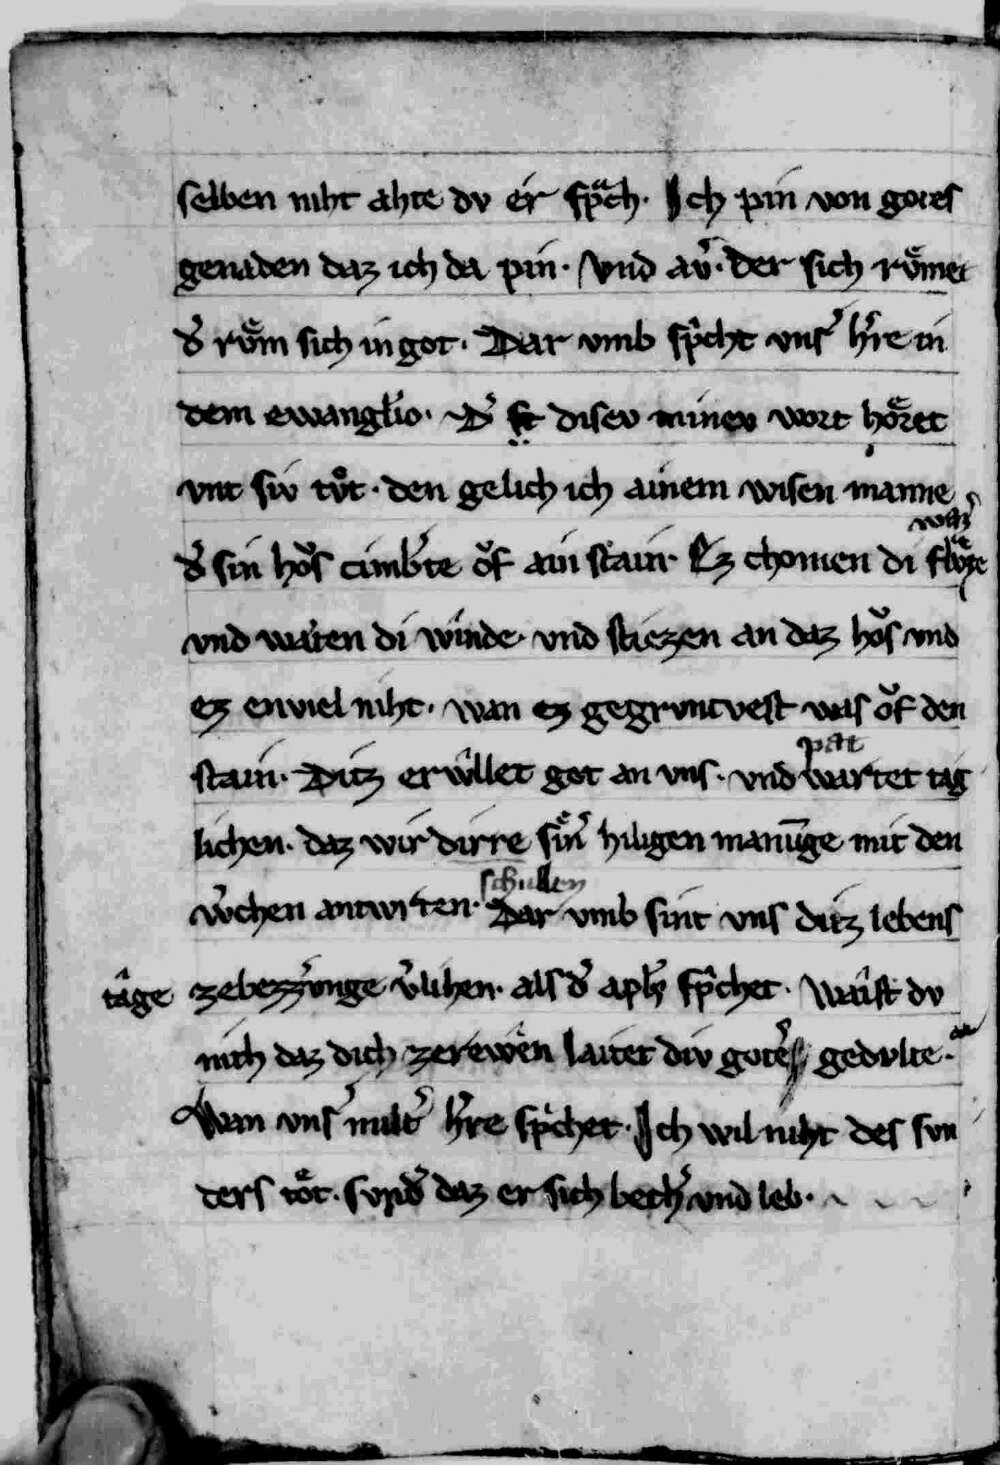 selben niht ahte dv er spͣch. Ich pin von gotes
genaden daz ich da pin. Vnd av̕. der sich rv̊met
d̕ rv̊m sich in got. Dar vmb sp̂cht vns̕ h̕re in
dem ewangl̕io. D̕ disev minev wort hoͤret
vnt siv tv̊t. den gelich ich ainem wisen manne
waz̕
d̕ sin hoͮs cimb̕te oͮf ain stain. Ez chomen di flvͤze
vnd waten di winde. vnd stiezen an daz hoͮs vnd
ez enviel niht. wan ez gegrvntvest was oͮf den
pat
stain. Ditz erwllet got an vns. vnd wartet tag
lichen. daz wir dirre sin̕ hiligen manūge mit den
schullen
w̕chen antwrten. Dar vmb sint vns ditz lebens
tage zebezz̕vnge v̕lihen. als d̕ apl̕s sp̂chet. Waist dv
nich daz dich zerewen laitet div gotes gedvlte.
Wan vns̕ milt̕ h̕re sp̂chet. Ich wil niht des svn
ters toͤt. svnd̕ daz er sich bech̕ vnd leb.